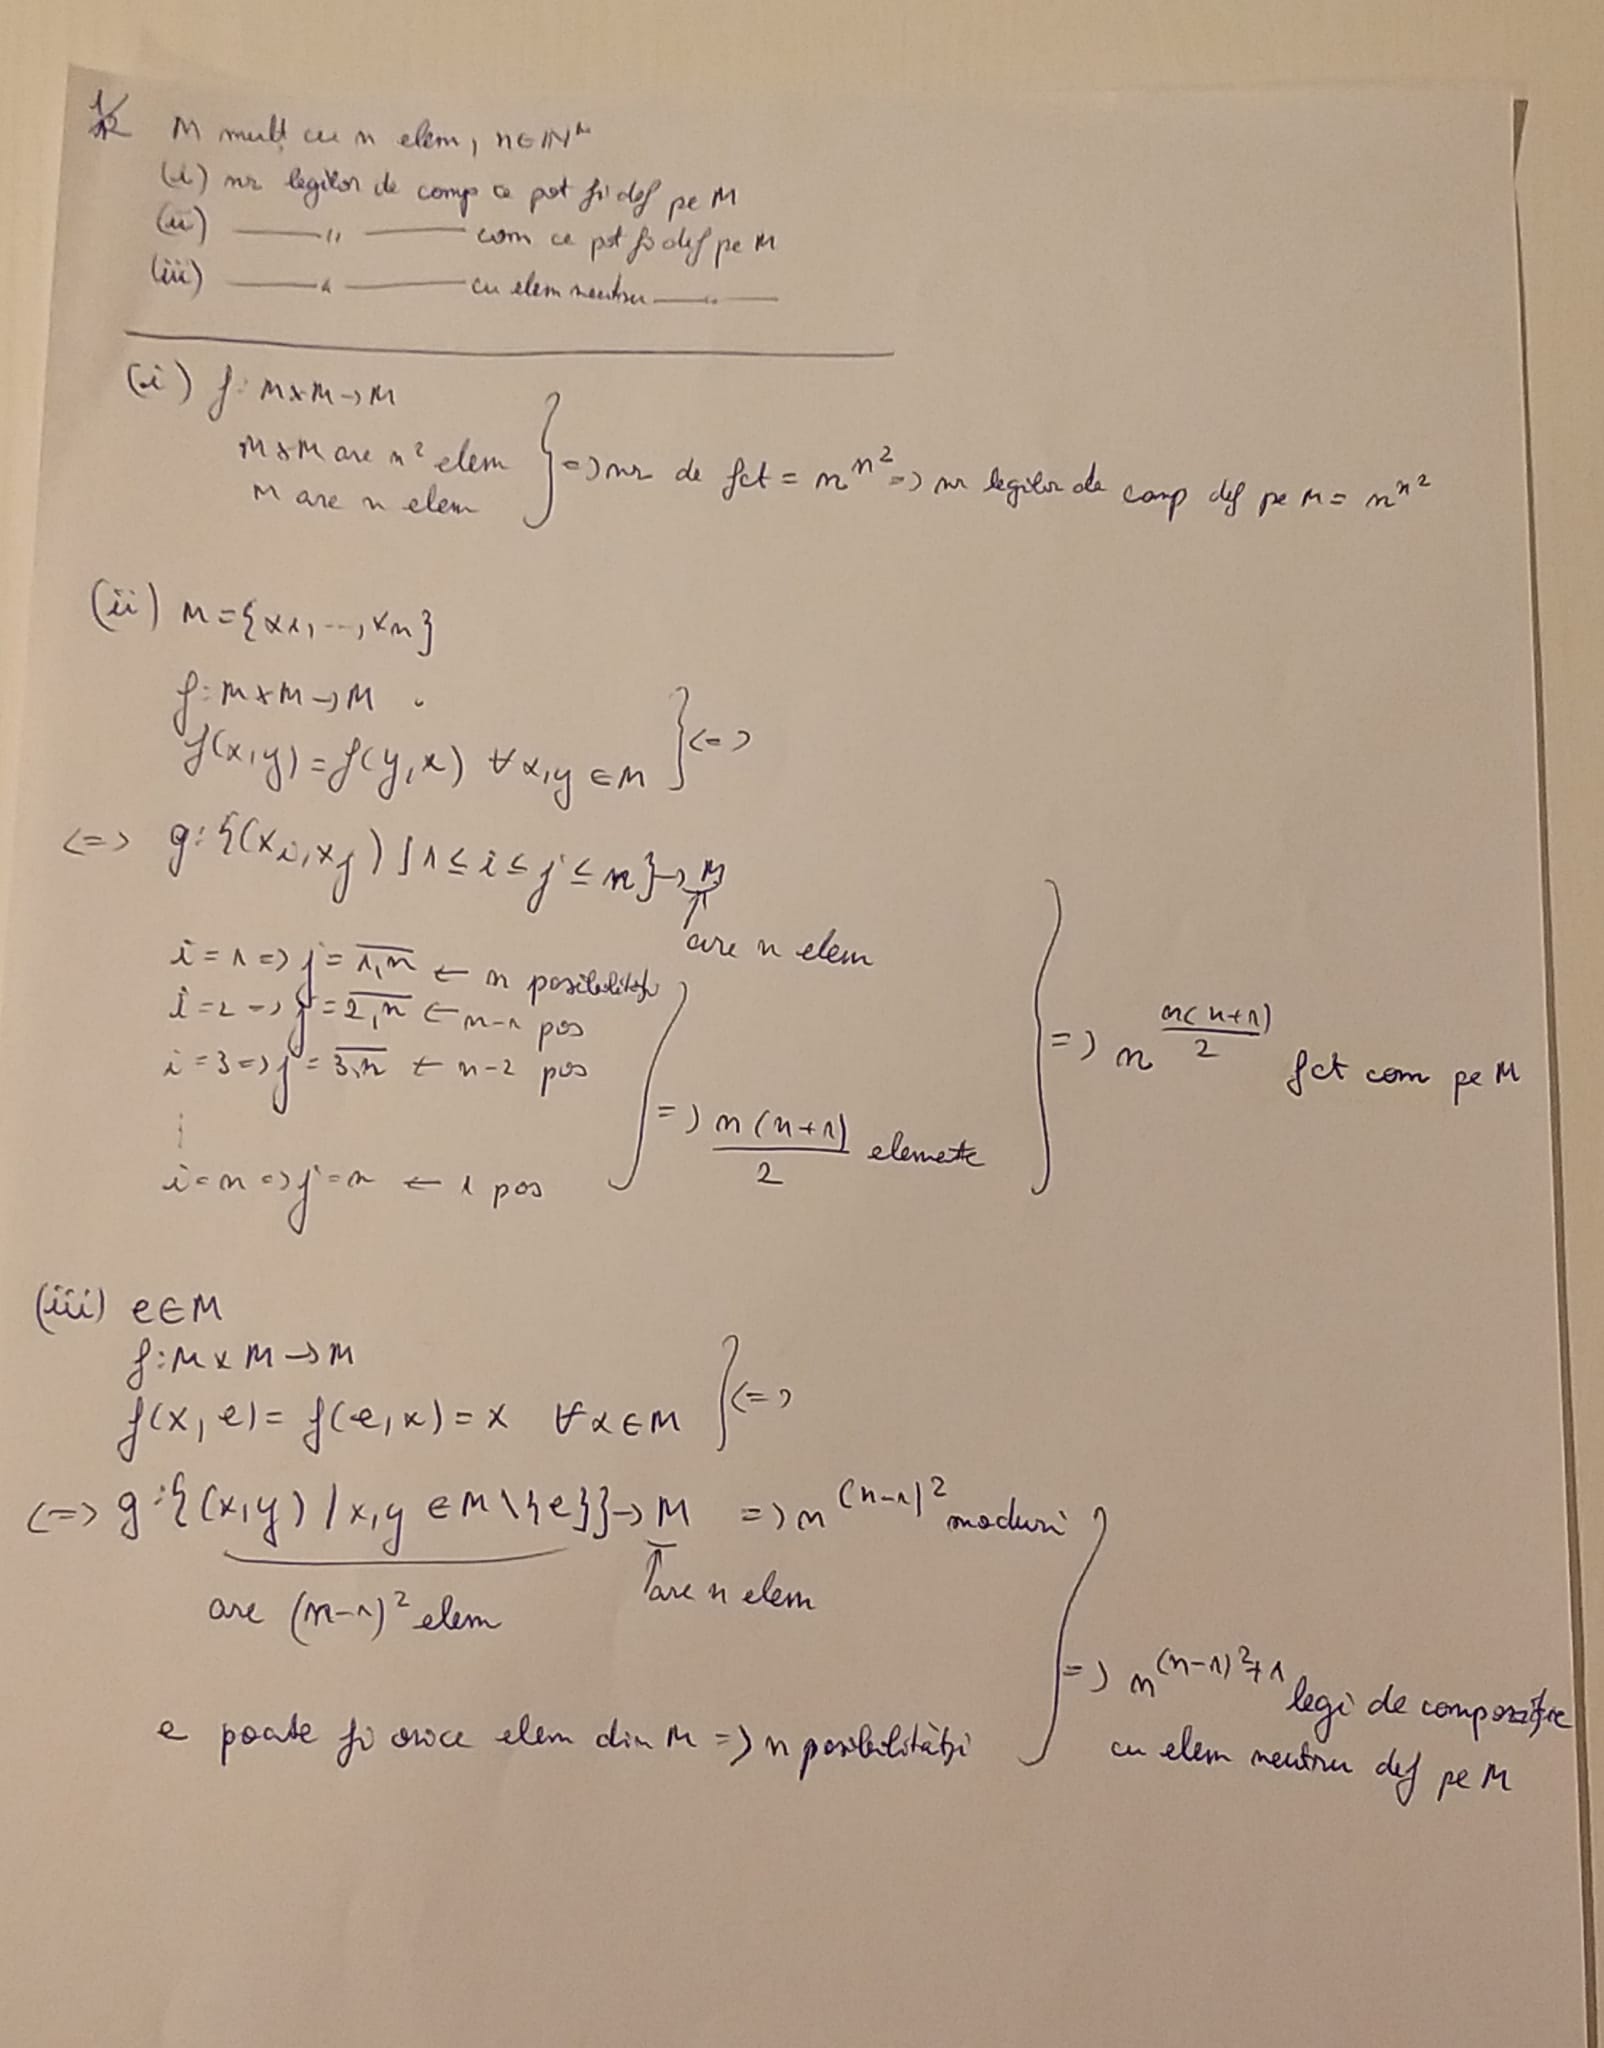 M mult cu n elem, n∈ℕ*
(i) nr legilor de comp ce pot fi def pe M
(ii) —— „ —— com ce pot fi def pe M
(iii) —— „ —— cu elem neutru —— „ ——
(i) f: M×M→M
M×M are n² elem
M are n elem
} => nr de fct = n^{n²} => nr legilor de comp def pe M = n^{n²}
(ii) M={x₁,...,xₙ}
f: M×M→M
f(x,y)=f(y,x) ∀x,y∈M } <=>
<=> g: {(x_i,x_j) | 1≤i≤j≤n}→M
are n elem
i=1 => j=\overline{1,n} ← n posibilități
i=2 => j=\overline{2,n} ← n-1 pos
i=3 => j=\overline{3,n} ← n-2 pos
⋮
i=n => j=n ← 1 pos
} => \frac{n(n+1)}{2} elemente
} => n^{\frac{n(n+1)}{2}} fct com pe M
(iii) e∈M
f: M×M→M
f(x,e)=f(e,x)=x ∀x∈M } <=>
<=> g: {(x,y) | x,y∈M\{e}}→M => n^{(n-1)²} moduri
are (n-1)² elem
are n elem
e poate fi orice elem din M => n posibilități
} => n^{(n-1)²+1} legi de compoziție
cu elem neutru def pe M